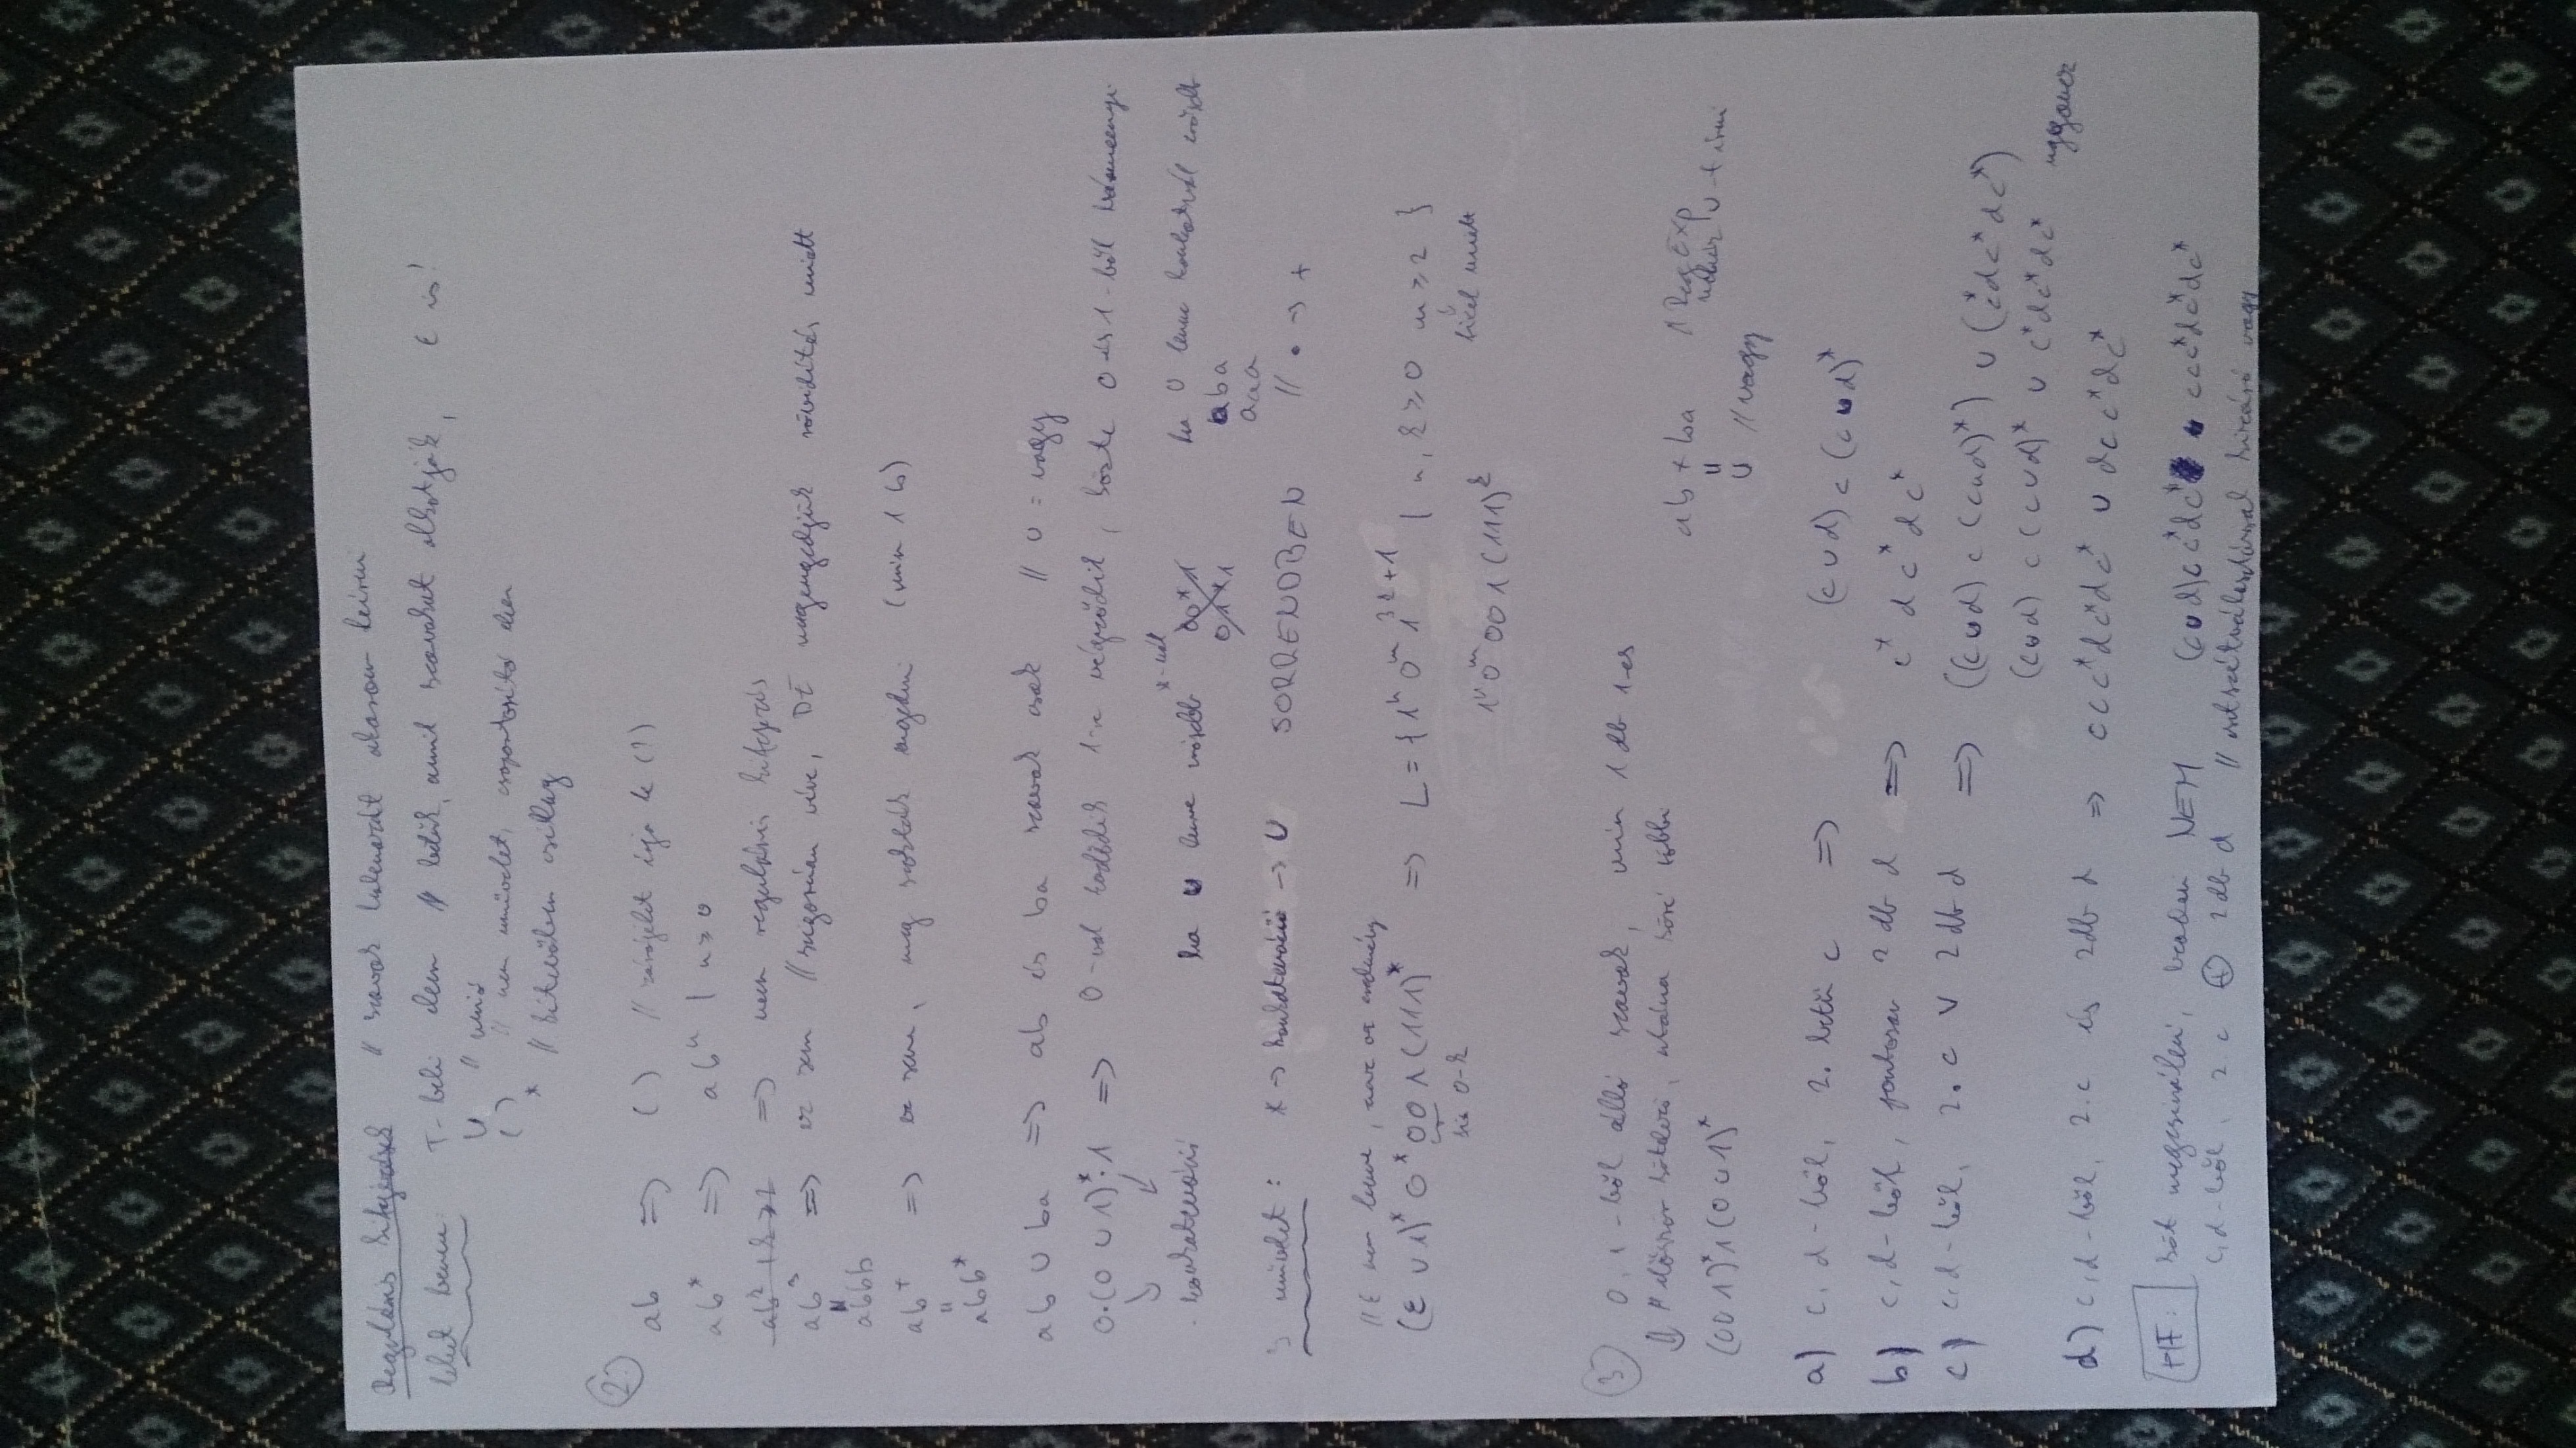 Reguláris kifejezések // szavak halmazát akarom leírni
lehet benne: T-beli elem // betűk, amik szavakat alkotják, ε is!
∪ // unió
( ) // nem művelet, csoportosító elem
* // kitevőben csillag
2.
ab => ( ) // zárójelet írja le (?)
ab* => abⁿ | n ≥ 0
abᵏ | k ≥ 2 => nem reguláris kifejezés
ab³ => ez sem // szigorúan véve, DE megengedjük rövidítés miatt
abbb
ab⁺ => ez sem, meg szokták engedni (min 1 b)
"
abb*
ab ∪ ba => ab és ba szavak csak // ∪ = vagy
0·(0 ∪ 1)*·1 => 0-val kezdődik 1-re végződik, közte 0 és 1-ből
konkatenáció ha ∪ lenne erősebb *-nál 00*1 ha ∪ lenne konkatnál erősebb
01*1 aba
aaa
3 művelet: * -> konkatenáció -> ∪ SORRENDBEN // • -> +
// ε nem lenne, az eredmény
(ε ∪ 1)* 0* 00 1 (111)* => L = { 1ⁿ 0ᵐ 1³ᵏ⁺¹ | n, k ≥ 0 m ≥ 2 }
fix 0-k miatt
1ⁿ 0ᵐ 00 1 (111)ᵏ
3. 0, 1-ből álló szavak, min 1 db 1-es
⇓ // először kötelező, utána köré többi
(0 ∪ 1)* 1 (0 ∪ 1)*
ab + ba // RegExp
nehéz ∪-t írni
"
∪ // vagy
a) c, d-ből, 2. betű c => (c ∪ d) c (c ∪ d)*
b) c, d-ből, pontosan 2 db d => c* d c* d c*
c) c, d-ből, 2. c ∨ 2 db d => ((c ∪ d) c (c ∪ d)*) ∪ (c* d c* d c*)
(c ∪ d) c (c ∪ d)* ∪ c* d c* d c* ugyanez
d) c, d-ből, 2. c és 2 db d => c c c* d c* d c* ∪ d c c* d c*
HF: megcsinálni, beadni NEM (c ∪ d) c c* d c* ∪ c c c* d c* d c*
c, d-ből, 2. c ⊕ 2 db d // esetszétválasztással kizáró vagy